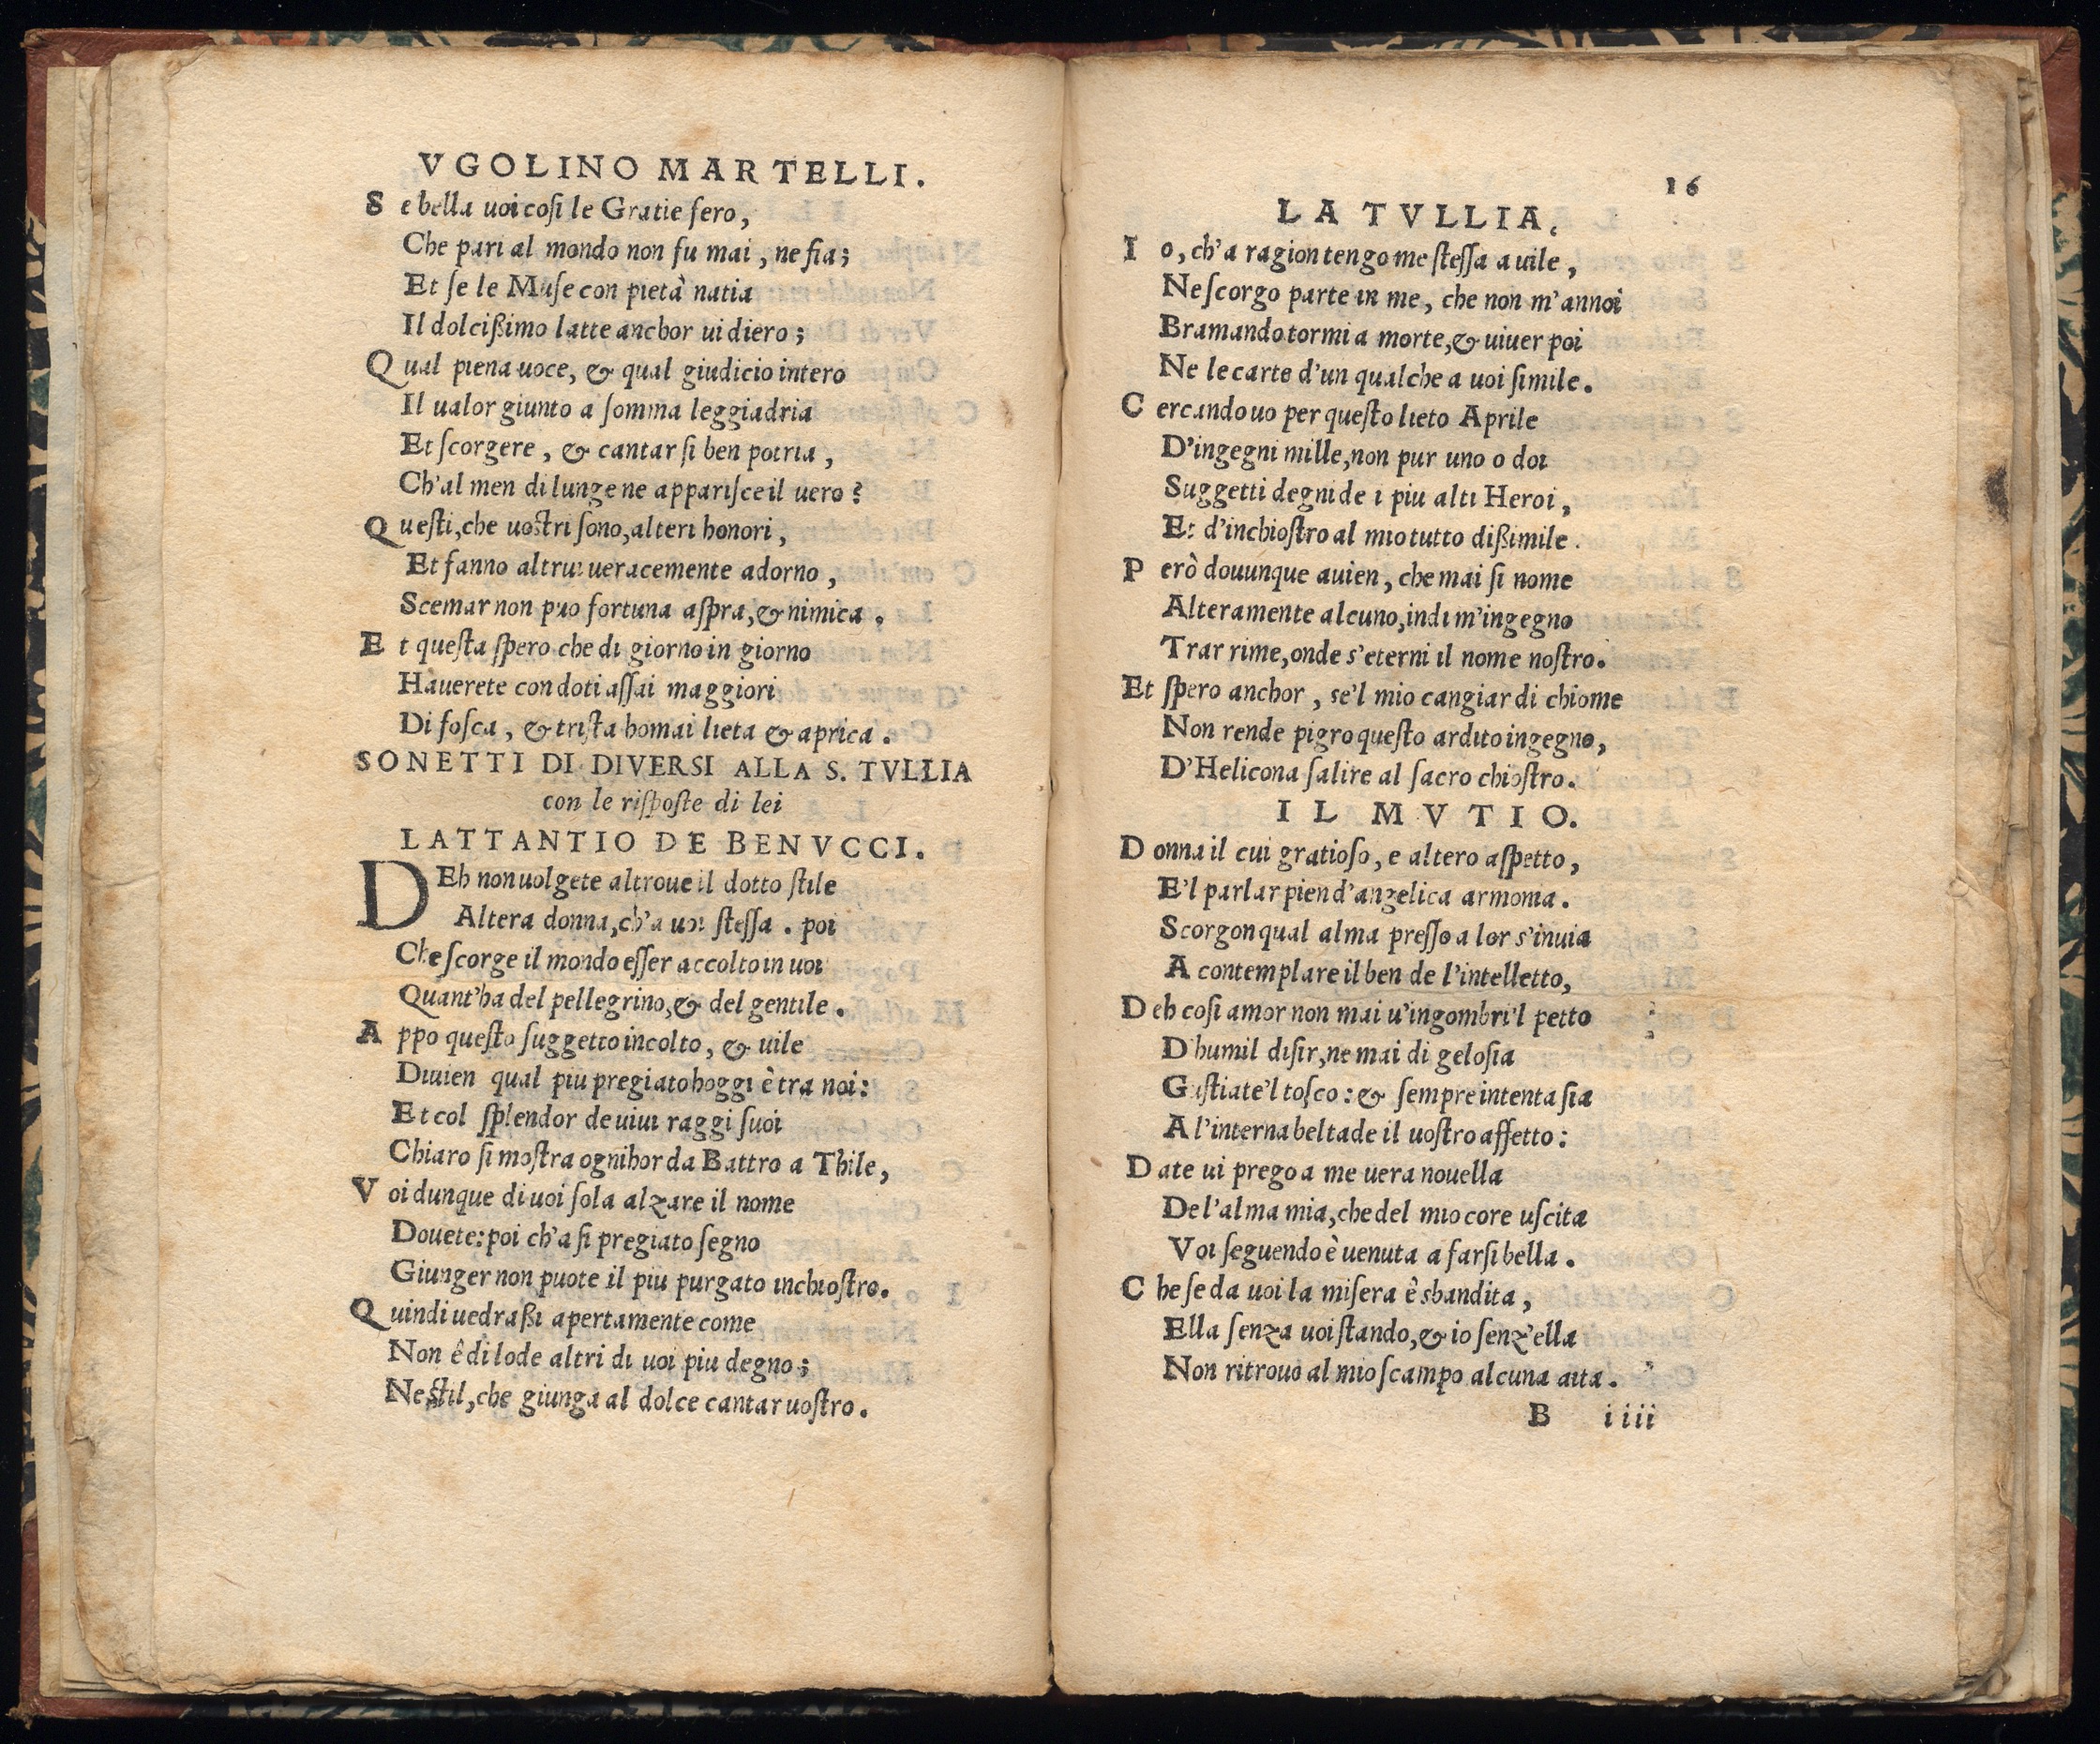 VGOLINO MARTELLI.
S e bella uoi cosi le Gratie fero,
Che pari al mondo non fu mai, ne fia;
Et se le Muse con pietà natia
Il dolcißimo latte anchor ui diero;
Q ual piena uoce, & qual giudicio intero
Il ualor giunto a somma leggiadria
Et scorgere, & cantar si ben potria,
Ch'al men di lunge ne apparisce il uero?
Q uesti, che uostri sono, alteri honori,
Et fanno altrui ueracemente adorno,
Scemar non puo fortuna aspra, & nimica.
E t questa spero che di giorno in giorno
Hauerete con doti assai maggiori
Di fosca, & trista homai lieta & aprica.
SONETTI DI DIVERSI ALLA S. TVLLIA
con le risposte di lei
LATTANTIO DE BENVCCI.
DEh non uolgete altroue il dotto stile
Altera donna, ch'a uoi stessa. poi
Che scorge il mondo esser accolto in uoi
Quant'ha del pellegrino, & del gentile.
A ppo questo suggetto incolto, & uile
Diuien qual piu pregiato hoggi è tra noi:
Et col splendor de uiui raggi suoi
Chiaro si mostra ognihor da Battro a Thile,
V oi dunque di uoi sola alzare il nome
Douete: poi ch'a si pregiato segno
Giunger non puote il piu purgato inchiostro.
Q uindi uedraßi apertamente come
Non ê di lode altri di uoi piu degno;
Ne stil, che giunga al dolce cantar uostro.
16
LA TVLLIA.
I o, ch'a ragion tengo me stessa a uile,
Ne scorgo parte in me, che non m'annoi
Bramando tormi a morte, & uiuer poi
Ne le carte d'un qualche a uoi simile.
C ercando uo per questo lieto Aprile
D'ingegni mille, non pur uno o doi
Suggetti degni de i piu alti Heroi,
Et d'inchiostro al mio tutto dißimile.
P erò douunque auien, che mai si nome
Alteramente alcuno, indi m'ingegno
Trar rime, onde s'eterni il nome nostro.
Et spero anchor, se'l mio cangiar di chiome
Non rende pigro questo ardito ingegno,
D'Helicona salire al sacro chiostro.
IL MVTIO.
D onna il cui gratioso, e altero aspetto,
E'l parlar pien d'angelica armonia.
Scorgon qual alma presso a lor s'inuia
A contemplare il ben de l'intelletto,
D eh cosi amor non mai u'ingombri'l petto
D'humil disir, ne mai di gelosia
Gustiate'l tosco: & sempre intenta sia
A l'interna beltade il uostro affetto:
D ate ui prego a me uera nouella
De l'alma mia, che del mio core uscita
Voi seguendo è uenuta a farsi bella.
C he se da uoi la misera ê sbandita,
Ella senza uoi stando, & io senz'ella
Non ritrouo al mio scampo alcuna aita.
B iiii